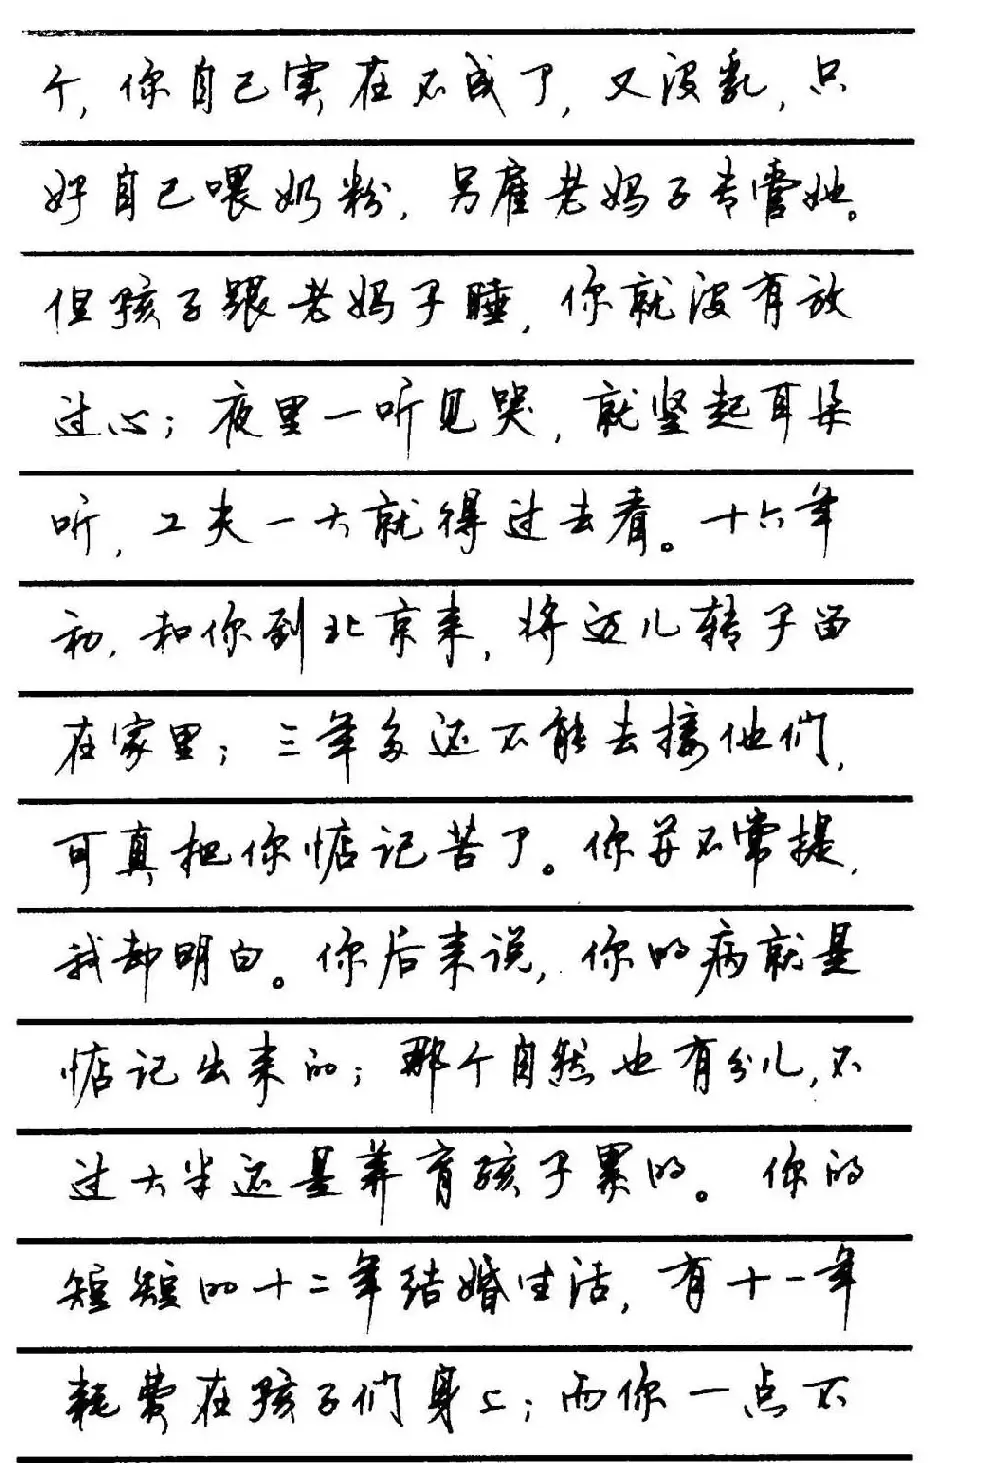 个，你自己实在不成了，又没乳，只
好自己喂奶粉，另雇老妈子专管她。
但孩子跟老妈子睡，你就没有放
过心；夜里一听见哭，就竖起耳朵
听，工夫一大就得过去看。十六年
初，和你到北京来，将迈儿转子留
在家里；三年多还不能去接他们，
可真把你惦记苦了。你并不常提，
我却明白。你后来说，你的病就是
惦记出来的；那个自然也有分儿，不
过大半还是养育孩子累的。你的
短短的十二年结婚生活，有十一年
耗费在孩子们身上；而你一点不